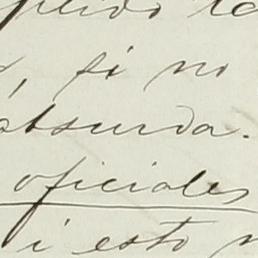 si no
absurda.
oficiales
i esto